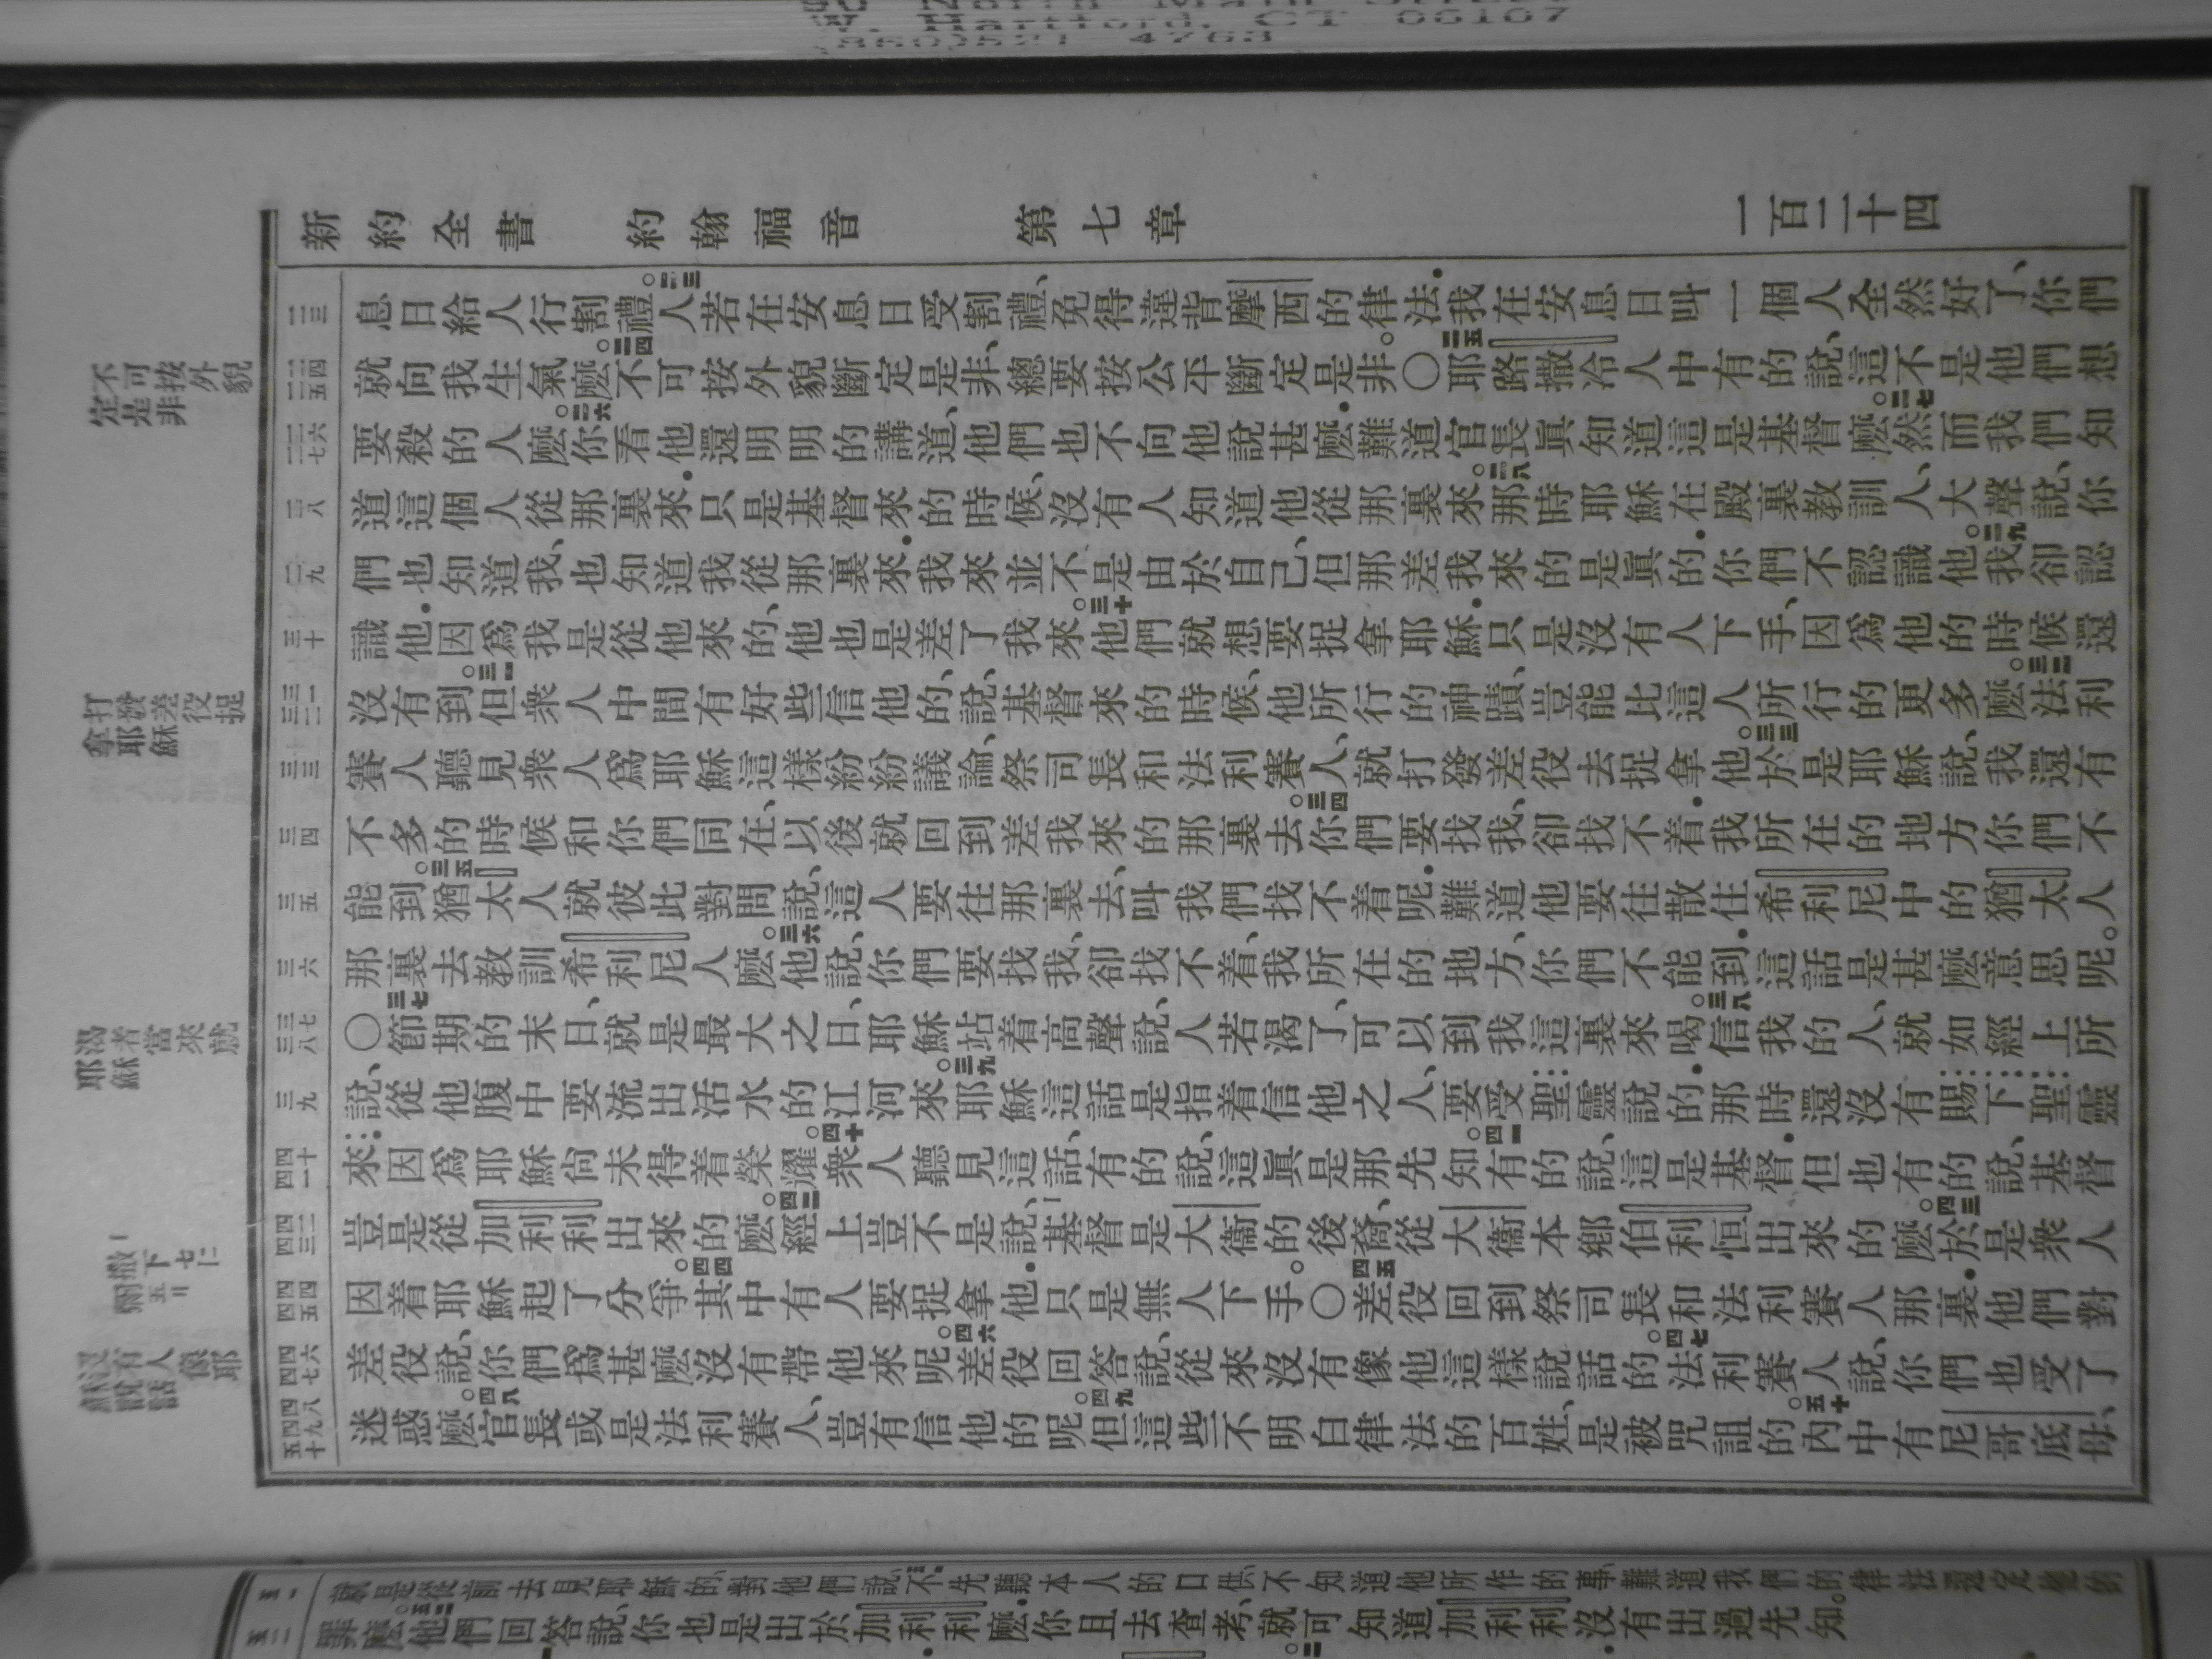 新約全書 約翰福音 第七章 一百二十四
息日給人行割禮。二三人若在安息日受割禮、免得違背摩西的律法．我在安息日叫一個人全然好了、你們
就向我生氣麼。二四不可按外貌斷定是非、總要按公平斷定是非。〇二五耶路撒冷人中有的說、這不是他們想
要殺的人麼。二六你看他還明明的講道、他們也不向他說甚麼．難道官長眞知道這是基督麼。二七然而我們知
道這個人從那裏來．只是基督來的時候、沒有人知道他從那裏來。二八那時耶穌在殿裏教訓人、大聲說、你
們也知道我、也知道我從那裏來．我來並不是由於自己、但那差我來的是眞的．你們不認識他。二九我卻認
識他．因爲我是從他來的、他也是差了我來。三十他們就想要捉拿耶穌．只是沒有人下手、因爲他的時候還
沒有到。三一但衆人中間有好些信他的、說、基督來的時候、他所行的神蹟、豈能比這人所行的更多麼。三二法利
賽人聽見衆人爲耶穌這樣紛紛議論、祭司長和法利賽人、就打發差役去捉拿他。三三於是耶穌說、我還有
不多的時候和你們同在、以後就回到差我來的那裏去。三四你們要找我、卻找不着．我所在的地方你們不
能到。三五猶太人就彼此對問說、這人要往那裏去、叫我們找不着呢．難道他要往散住希利尼中的猶太人
那裏去教訓希利尼人麼。三六他說、你們要找我、卻找不着、我所在的地方、你們不能到．這話是甚麼意思呢。
〇三七節期的末日、就是最大之日、耶穌站着高聲說、人若渴了、可以到我這裏來喝。三八信我的人、就如經上所
說、從他腹中要流出活水的江河來。三九耶穌這話是指着信他之人、要受聖靈說的．那時還沒有賜下聖靈
來．因爲耶穌尙未得着榮耀。四十衆人聽見這話、有的說、這眞是那先知。四一有的說、這是基督．但也有的說、基督
豈是從加利利出來的麼。四二經上豈不是說、基督是大衞的後裔、從大衞本鄉伯利恒出來的麼。四三於是衆人
因着耶穌起了分爭。四四其中有人要捉拿他．只是無人下手。〇四五差役回到祭司長和法利賽人那裏．他們對
差役說、你們爲甚麼沒有帶他來呢。四六差役回答說、從來沒有像他這樣說話的。四七法利賽人說、你們也受了
迷惑麼。四八官長或是法利賽人、豈有信他的呢。四九但這些不明白律法的百姓、是被咒詛的。五十內中有尼哥底母、
就是從前去見耶穌的、對他們說、五一不先聽本人的口供、不知道他所作的事、難道我們的律法還定他的
罪麼。五二他們回答說、你也是出於加利利麼．你且去查考、就可知道加利利沒有出過先知。
不可按外貌
定是非
打發差役捉
拿耶穌
渴者當來就
耶穌
沒有人像耶
穌說話